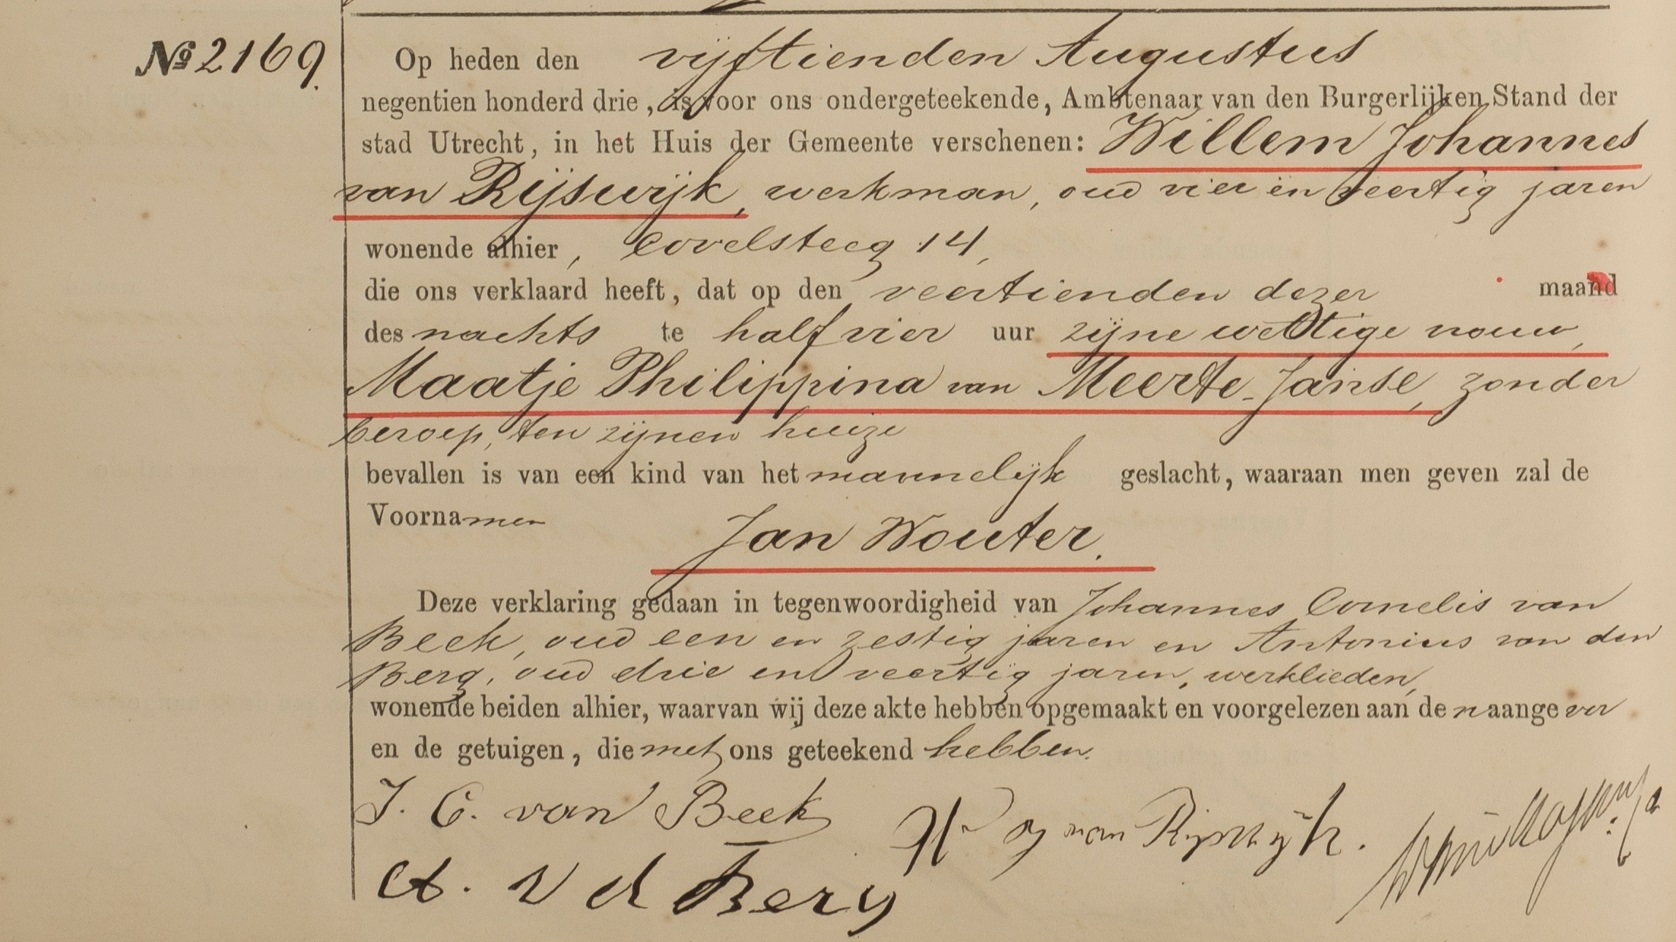 № 2169.
Op heden den vijftienden Augustus
negentien honderd drie, is voor ons ondergeteekende, Ambtenaar van den Burgerlijken Stand der
stad Utrecht, in het Huis der Gemeente verschenen: Willem Johannes
van Rijswijk, werkman, oud vier en veertig jaren
wonende alhier, Covelsteeg 14,
die ons verklaard heeft, dat op den veertienden dezer maand
des nachts te half vier uur zijne wettige vrouw,
Maatje Philippina van Meerte-Janse, zonder
beroep, ten zijnen huize
bevallen is van een kind van het mannelijk geslacht, waaraan men geven zal de
Voornamen
Jan Wouter.
Deze verklaring gedaan in tegenwoordigheid van Johannes Cornelis van
Beek, oud een en zestig jaren en Antonius van den
Berg, oud drie en veertig jaren, werklieden,
wonende beiden alhier, waarvan wij deze akte hebben opgemaakt en voorgelezen aan den aangever
en de getuigen, die met ons geteekend hebben.
J. C. van Beek W J van Rijswijk.
A. v d Berg